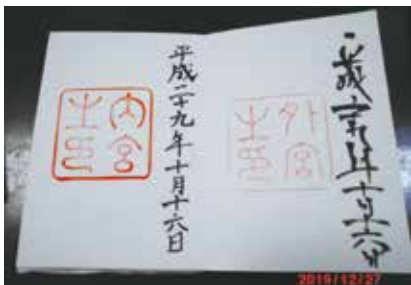 平成二十九年十月十六日
外宮
之印
平成二十九年十月十六日
内宮
之印
2019/12/27